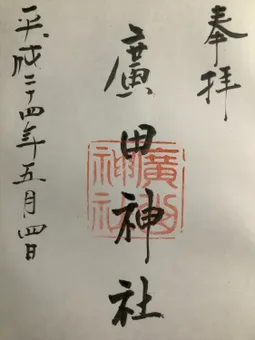 奉拝
廣田神社
廣田
神社
平成二十四年五月四日